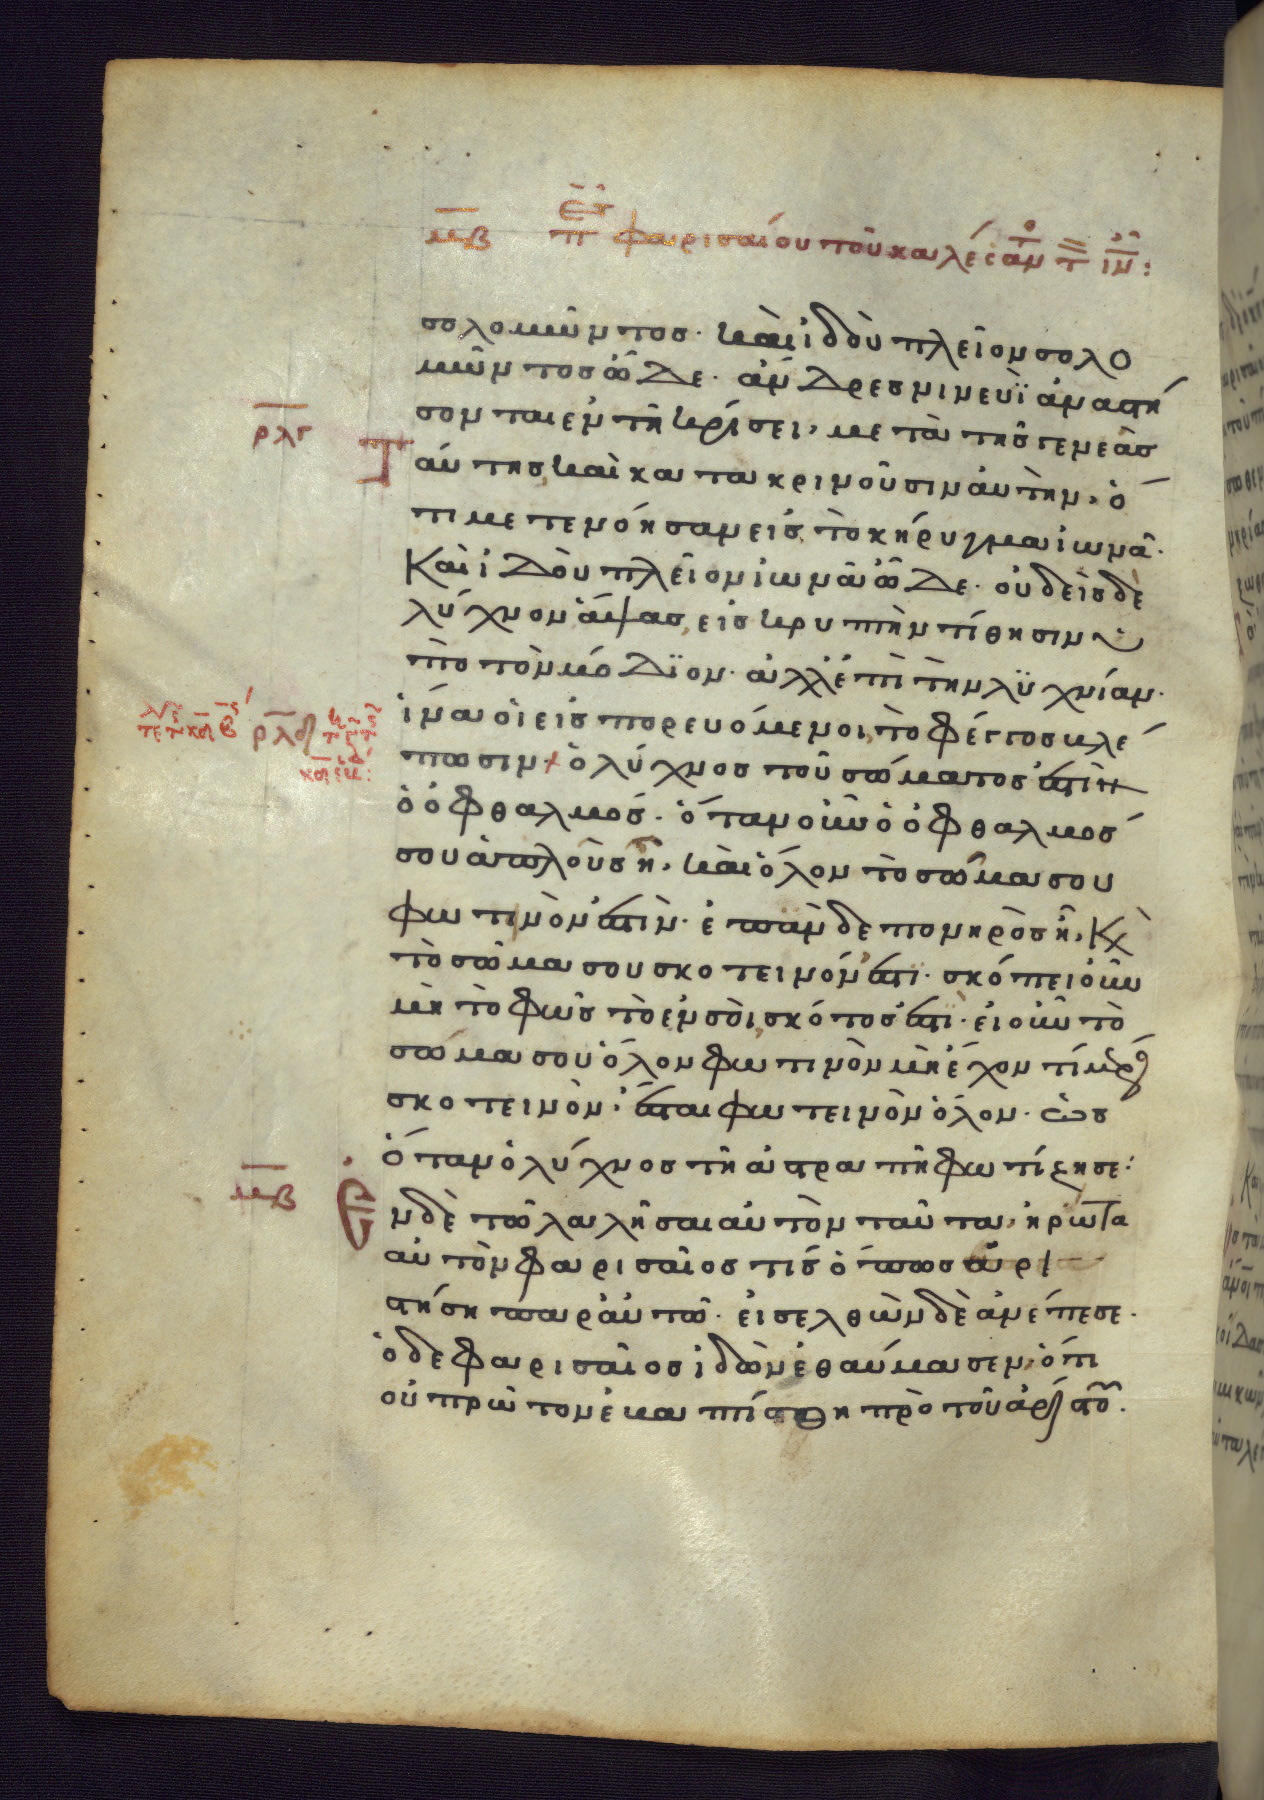 μβ π φαρισαίου τοῦ καλέσαντ τ ιν:
σολομῶντος· καὶ ἰδοὺ πλεῖον σολο
μῶντος ὧδε· ἄνδρες νινευῒ ἀναστή
σονται ἐν τῆ κρίσει, μετὰ τῆς γενεᾶς
ρλγ
ταύτης, καὶ κατακρινοῦσιν αὐτὴν, ὅ
τι μετενόησαν εἰς τὸ κήρυγμα ἰωνᾶ·
Καὶ ἰδοὺ πλεῖον ἰωνᾶ ὧδε· οὐδεὶς δὲ
λύχνον ἅψας, εἰς κρυπτὴν τίθησιν οὐ
πὸ τὸν μόδϊον· ἀλλ' ἐπὶ τὴν λϋχνίαν·
ρλδ
ἵνα οἱ εἰσπορευόμενοι, τὸ φέγγος βλέ
πωσιν + ὁ λύχνος τοῦ σώματός ἐστιν
ὁ ὀφθαλμός· ὅταν οὖν ὁ ὀφθαλμός
σου ἁπλοῦς ἦ, καὶ ὅλον τὸ σῶμα σου
φωτινόν ἐστιν· ἐπὰν δὲ πονηρὸς ἦ, Κὶ
τὸ σῶμα σου σκοτεινόν ἐστι· σκόπει οὖν
μὴ τὸ φῶς τὸ ἐν σοὶ, σκότος ἐστὶ· εἰ οὖν τὸ
σῶμα σου ὅλον φωτινὸν μὴ ἔχον τί μέρ
σκοτεινὸν· ἔσται φωτεινὸν ὅλον· ὡς
ὅταν ὁ λύχνος τῆ ἀστραπῆ φωτίζη σε:
μβ
Ἐνδὲ τῶ λαλῆσαι αὐτὸν ταῦτα, ἠρώτα
αὐτὸν φαρισαῖος τίς ὅπως ἀρι
στήση παρ' αὐτῶ· εἰσελθὼν δὲ ἀνέπεσε·
ὁ δὲ φαρισαῖος ἰδὼν ἐθαύμασεν, ὅτι
οὐ πρῶτον ἐβαπτίσθη πρὸ τοῦ ἀρίστου·